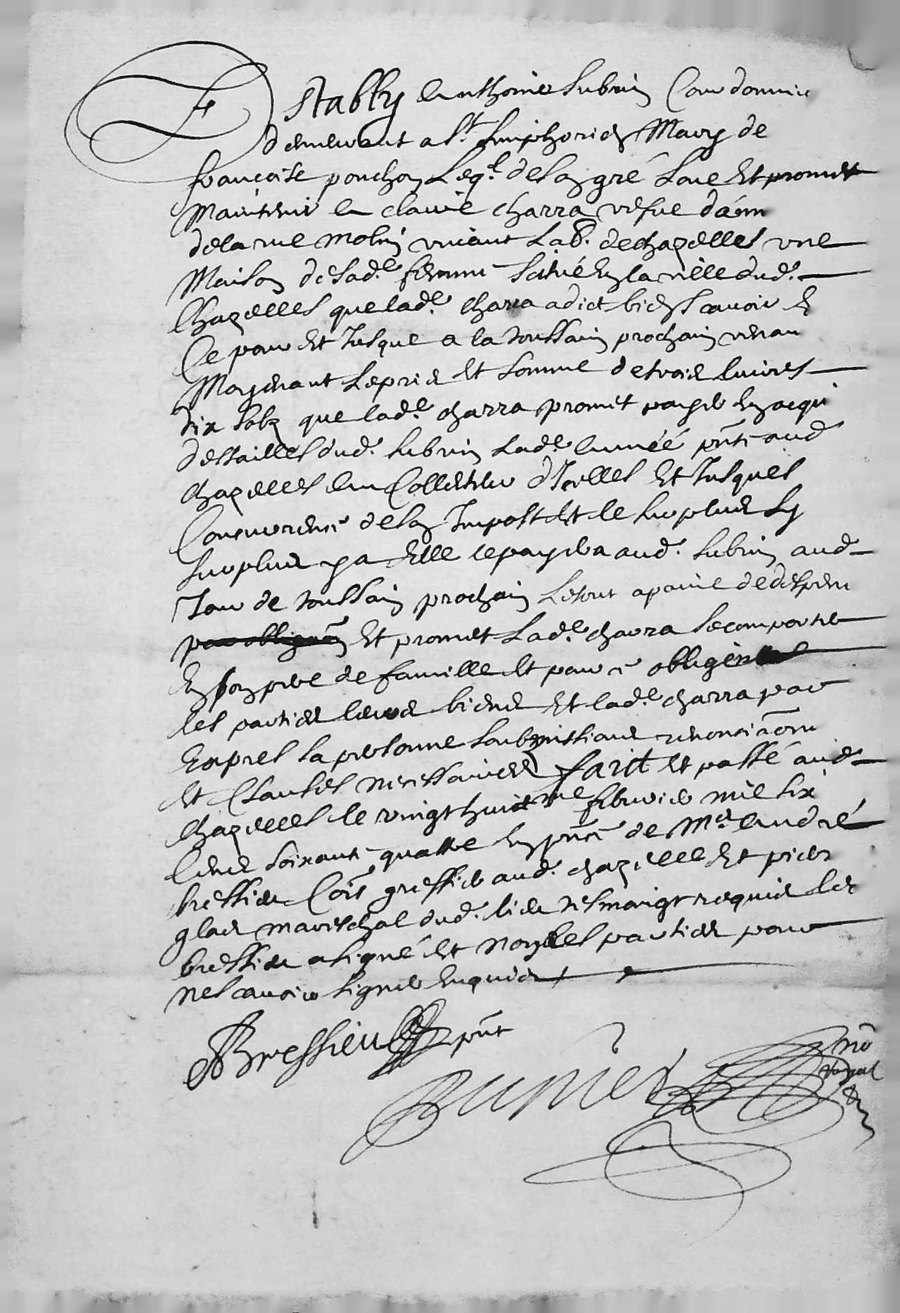 Establly Anthoine Subrin Cordonnier
demeurant a St Simphorien Mary de
françoise ponchon Leql. de son gré Loue Et promet
Maintenir a claude charra vefve
de la rue vivant de chazelles une
Maison de sad. femme Scituée en la ville dud.
Chazelles que lad. charra a dict bien scavoir Et
Ce pour Et Jusque a la Toussain prochain venan
Moyenant Le prix Et somme de trois livres
dix solz que lad. charra promet payer En acqui
des tailles dud. Subrin Lad. Année pnte aud.
chazelles Au Collecteur d'Icelles Et Jusques
Concurence de son Impost Et le surplus Sy
surplus y a Elle le payera aud. Subrin aud.
Jour de Toussain prochain Le tout a paine de despens
Et promet Lad. charra se comporter
En bon pere de famille Et pour ce obligent
les parties leurs biens Et lad. charra par
Expres sa personne soubzmissions renonciaōns
Et Clauses necessaires faict et passé aud.
chazelles le vingt huictme febvrier mil six
Cens soixante quattre En pnce de Me André
bressieu Cois greffier aud. chazelles Et pierre
glas mareschal dud. lieu tesmoingt requis led.
bressieu a signé Et non les parties pour
ne scavoir signer Enquis
ABressieu pnt
Bunier
no
royal